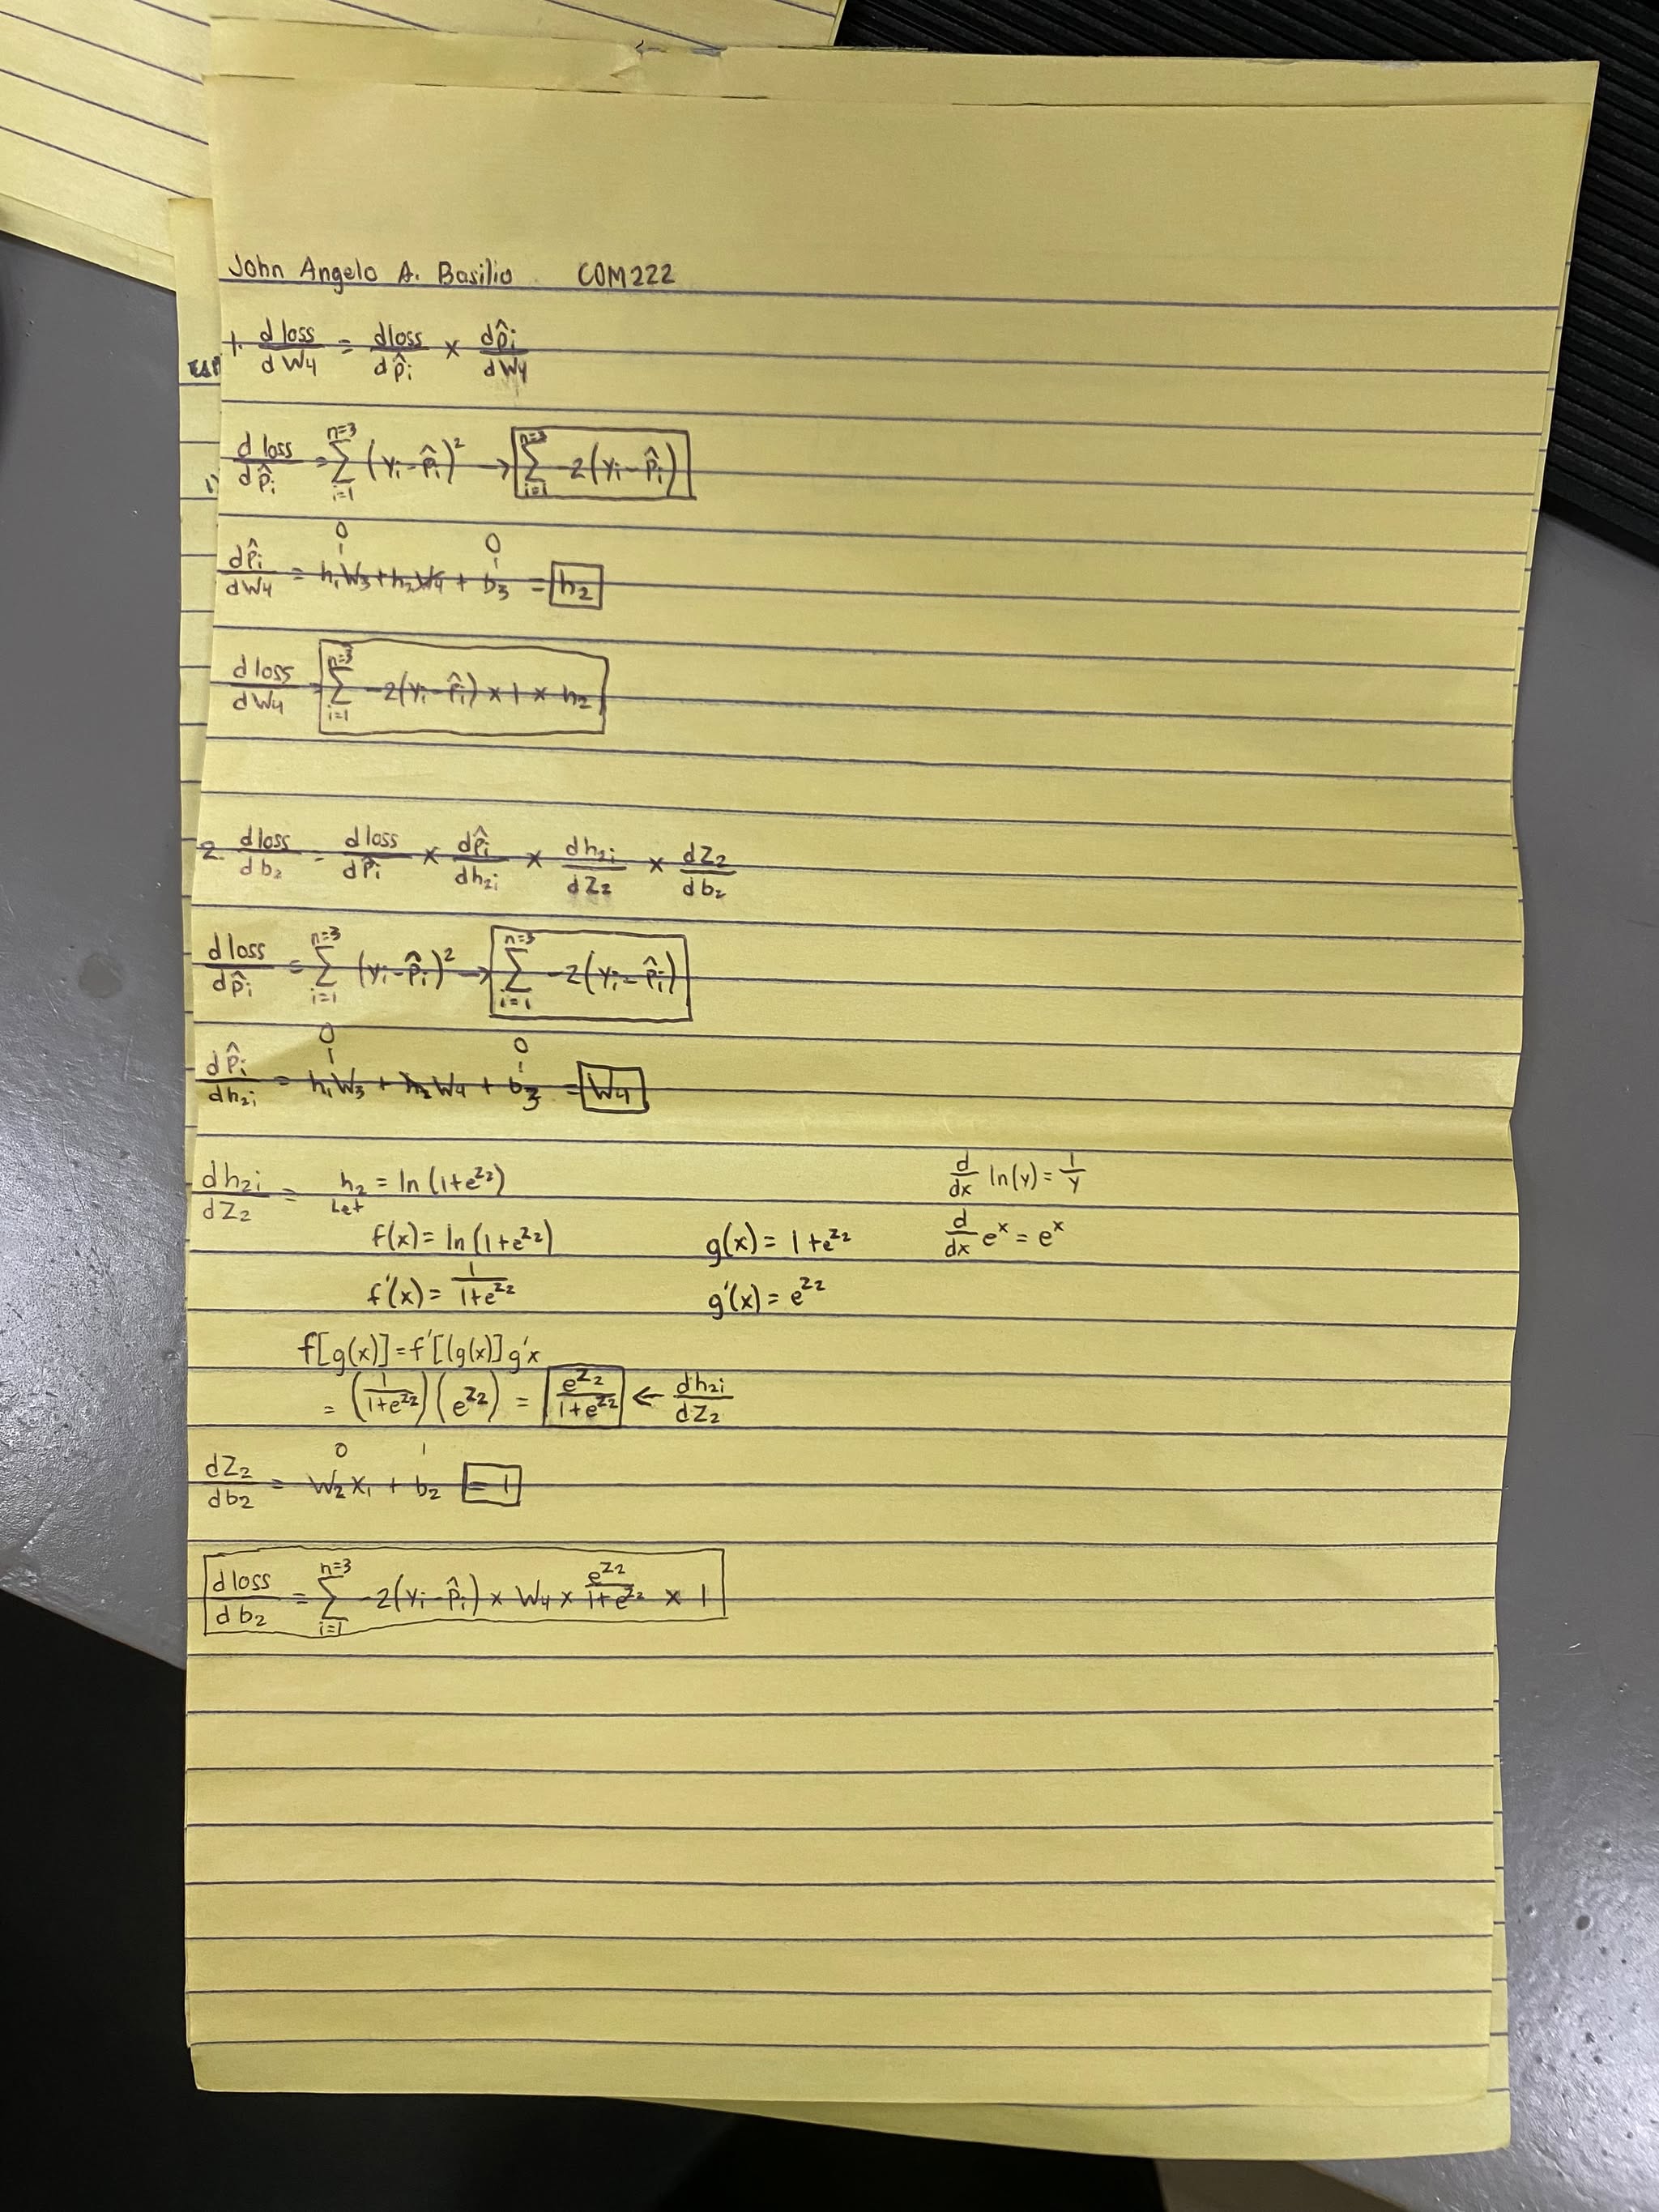 John Angelo A. Basilio COM222
1. d loss / dW4 = dloss / dp̂i × dp̂i / dW4
d loss / dp̂i = Σ n=3 i=1 (yi - p̂i)² → Σ n=3 i=1 -2(yi - p̂i)
0 0
dp̂i / dW4 = h1W3 + h2W4 + b3 = h2
d loss / dW4 = Σ n=3 i=1 -2(yi - p̂i) × 1 × h2
2. dloss / db2 = d loss / dp̂i × dp̂i / dh2i × dh2i / dZ2 × dZ2 / db2
d loss / dp̂i = Σ n=3 i=1 (yi - p̂i)² → Σ n=3 i=1 -2(yi - p̂i)
0 0
dp̂i / dh2i = h1W3 + h2W4 + b3 = W4
dh2i / dZ2 = h2 = ln(1+e^Z2) d/dx ln(y) = 1/y
Let
f(x) = ln(1+e^Z2) g(x) = 1+e^Z2 d/dx e^x = e^x
f'(x) = 1 / 1+e^Z2 g'(x) = e^Z2
f[g(x)] = f'[(g(x)] g'x
= (1 / 1+e^Z2)(e^Z2) = e^Z2 / 1+e^Z2 ← dh2i / dZ2
0 1
dZ2 / db2 = W2X1 + b2 = 1
d loss / db2 = Σ n=3 i=1 -2(yi - p̂i) × W4 × e^Z2 / 1+e^Z2 × 1